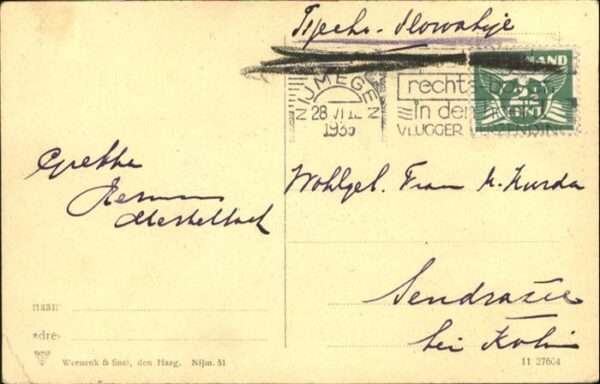 Tsjecho-Slowakije
NIJMEGEN
28 VII
1935
rechts boven
in den
VLUGGER
LAND
Grethe
Herman
Wohlgeb. Frau M. Kurda
Sendražic
bei Kolin
naam
adres
Weenenk & Snel, den Haag. Nijm. 51
11 27604